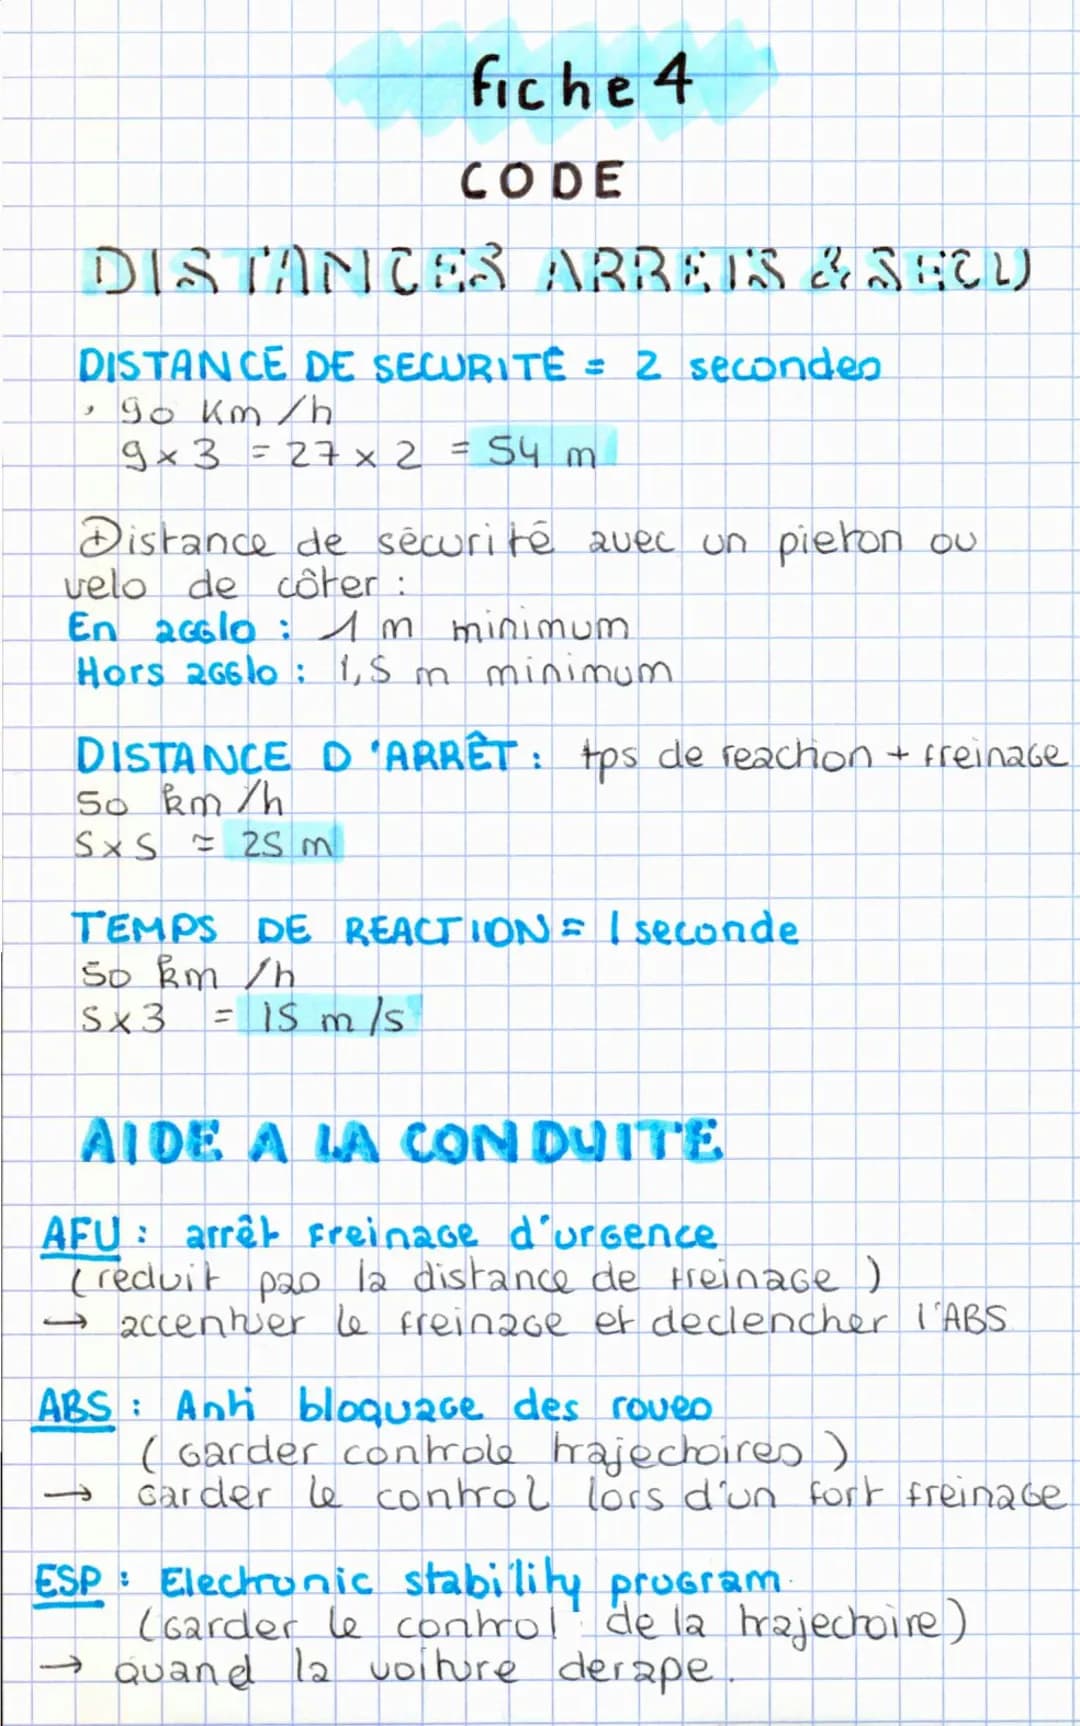 fiche 4
CODE
DISTANCES ARRETS & SECU
DISTANCE DE SECURITÉ = 2 secondes
• 90 Km /h
9 x 3 = 27 x 2 = 54 m
⊕ Distance de sécurité avec un pieton ou
velo de côter :
En agglo : 1 m minimum
Hors agglo : 1,5 m minimum
DISTANCE D'ARRÊT : tps de reaction + freinage
50 km /h
5x5 ≃ 25 m
TEMPS DE REACTION = 1 seconde
50 km /h
5x3 = 15 m/s
AIDE A LA CONDUITE
AFU : arrêt freinage d'urgence
(reduit pas la distance de freinage )
→ accentuer le freinage et declencher l'ABS
ABS : Anti bloquage des roues
( Garder controle trajectoires )
→ Garder le control lors d'un fort freinage
ESP : Electronic stability program.
(Garder le control de la trajectoire)
→ Quand la voiture derape.